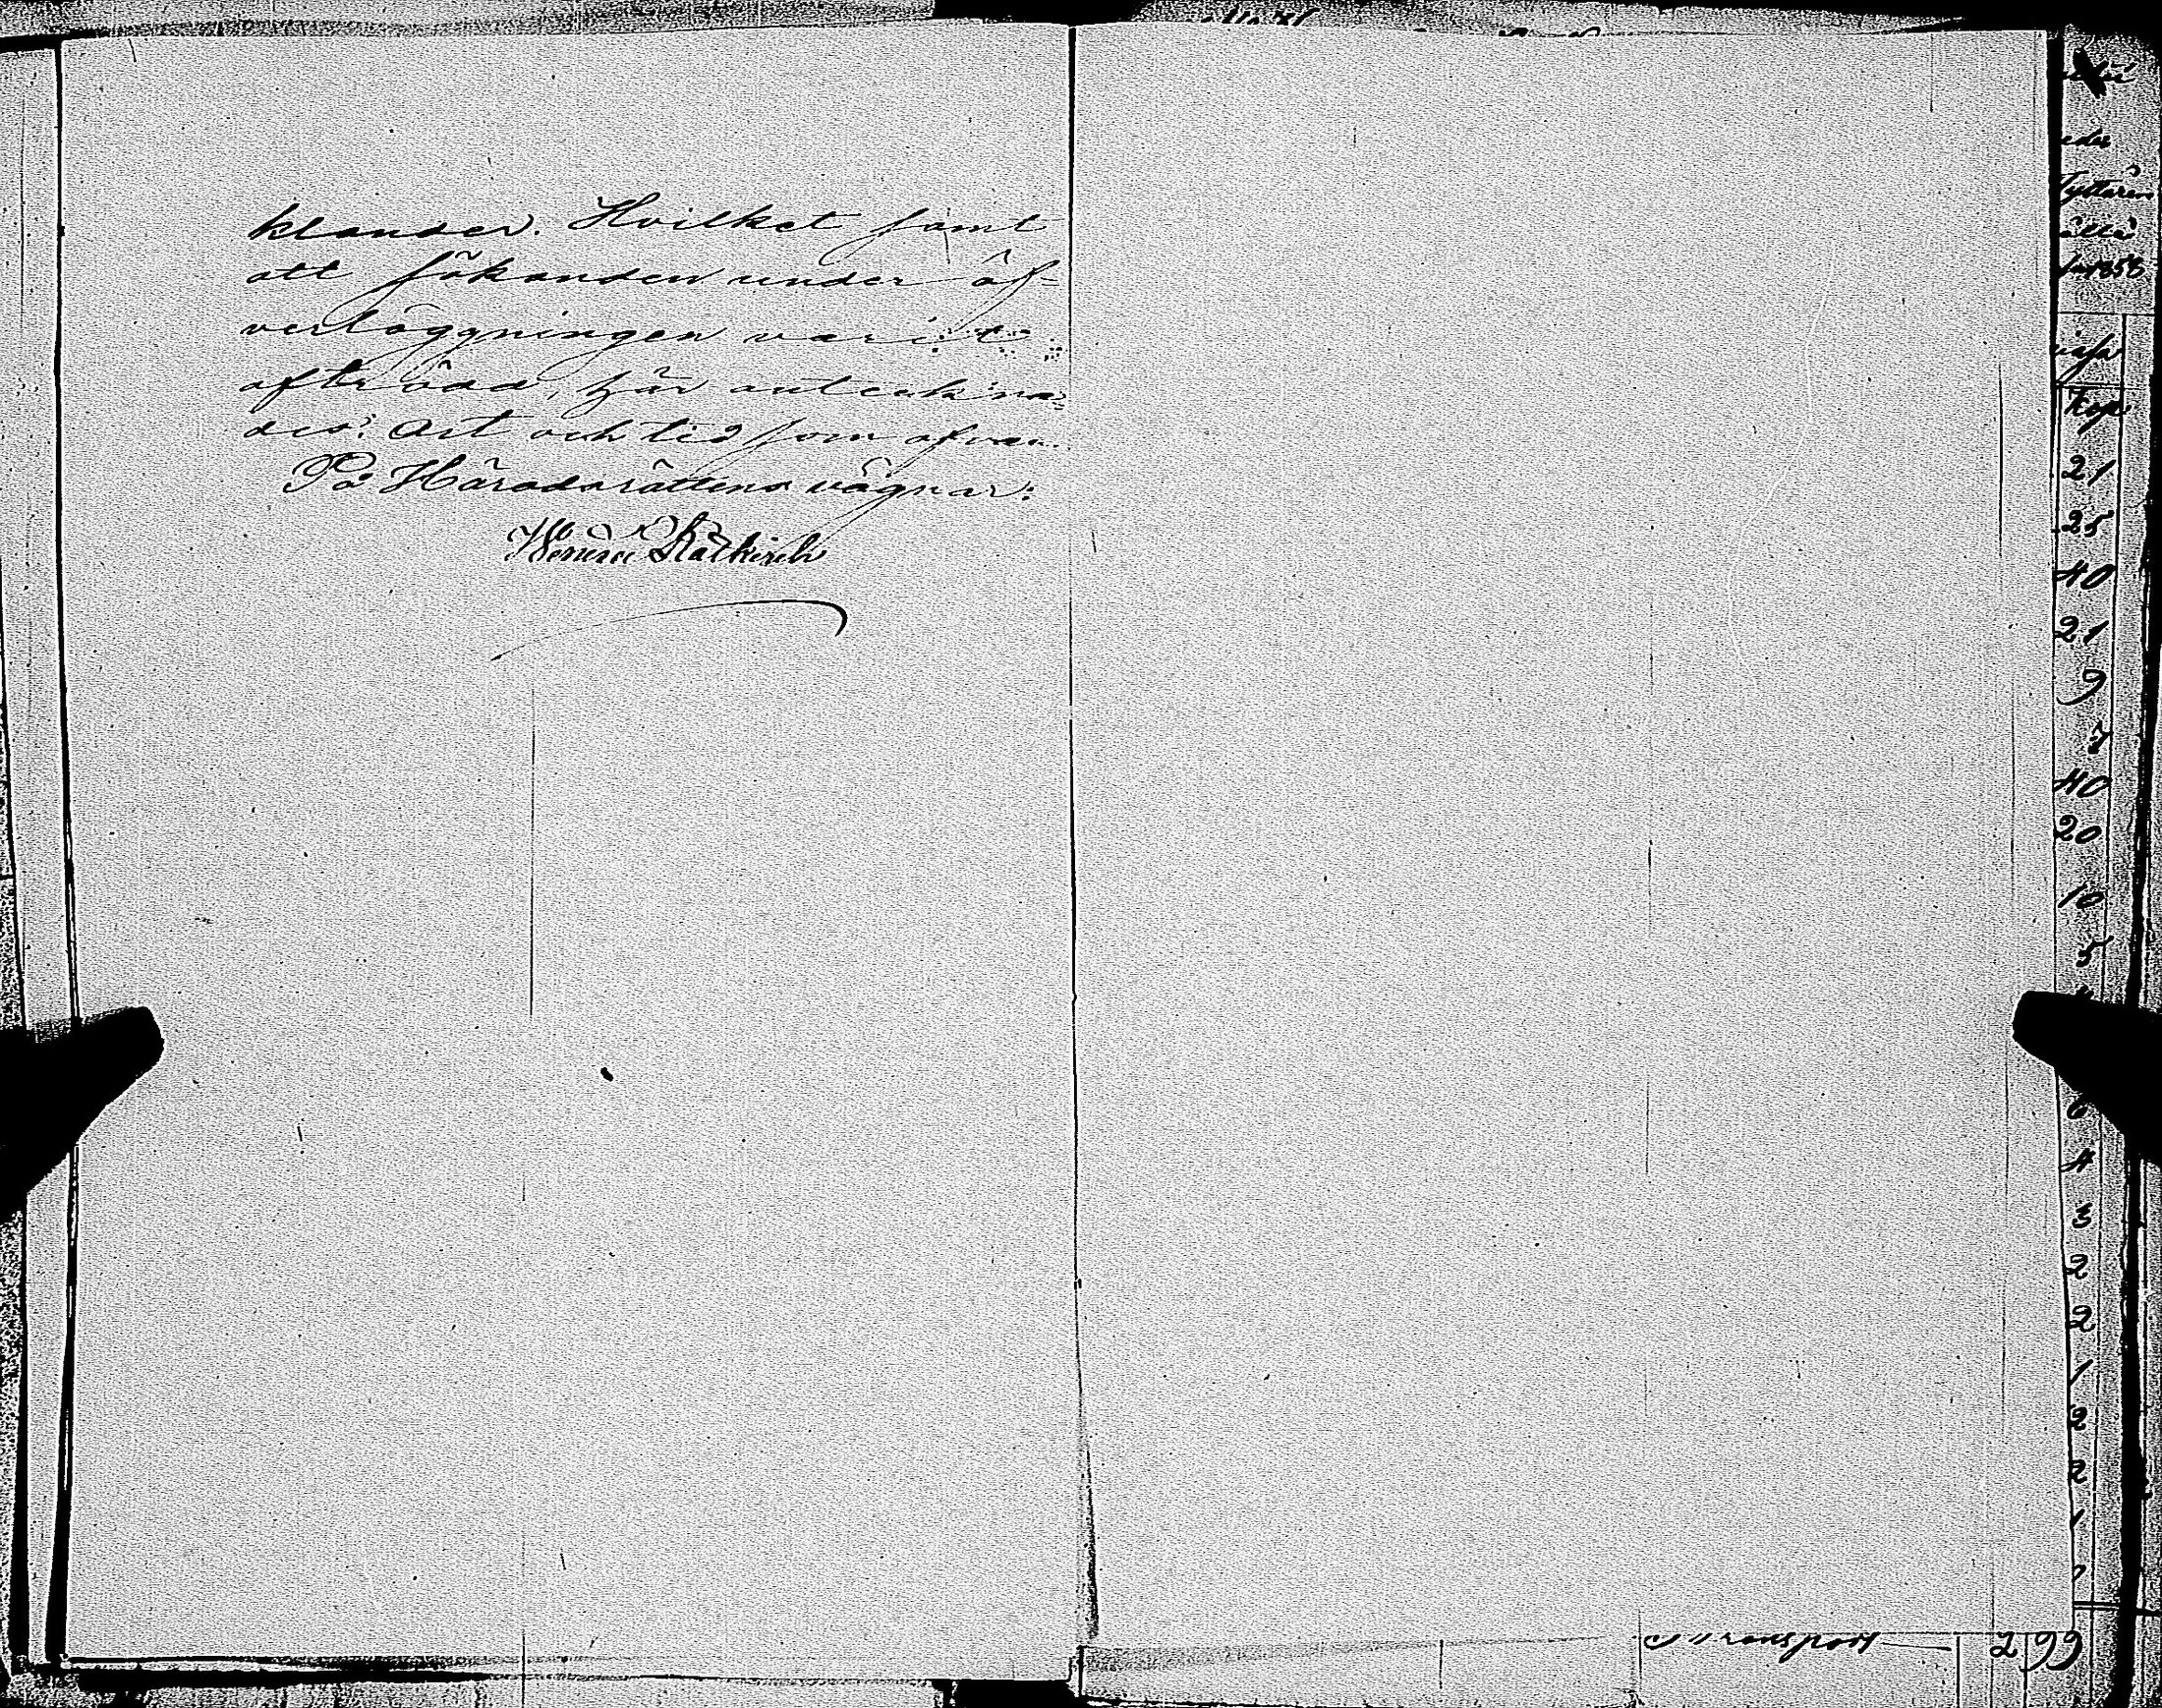 klander. Hvilket samt
att sökanden under öf-
verläggningen varit
afträdd, här anteckna-
des. Ort och tid som ofvan.
På Häradsrättens vägnar:
edu
Lyttaren
1858
Kop
21
25
40
21
9
7
40
20
10
5
6
4
3
2
2
1
2
2
1
Transport 2 99